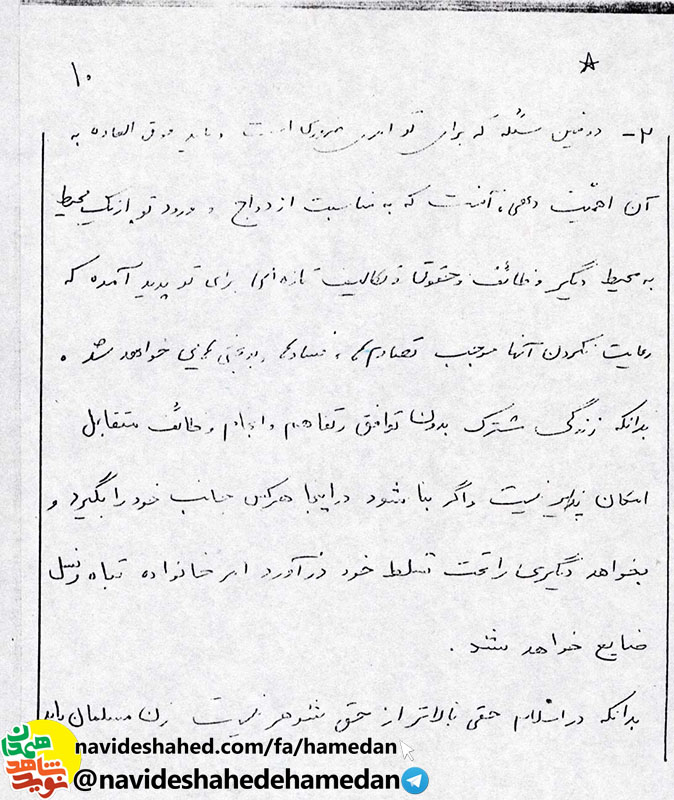 ۱۰
۲- دومین مسئله که برای تو امری ضروری است و باید فوق العاده به
آن اهمیّت دهی، آنست که به مناسبت ازدواج و ورود تو از یک محیط
به محیط دیگر وظائف و حقوق و تکالیف تازه‌ای برای تو پدید آمده که
رعایت نکردن آنها موجب تصادم‌ها، فسادها و بدبختی‌هایی خواهد شد.
بدانکه زندگی مشترک بدون توافق و تفاهم و انجام وظائف متقابل
امکان پذیر نیست و اگر بنا شود در اینجا هرکس جانب خود را بگیرد و
بخواهد دیگری را تحت تسلط خود درآورد امر خانواده تباه و نسل
ضایع خواهد شد.
بدانکه در اسلام حقی بالاتر از حق شوهر نیست زن مسلمان باید
نوید شاهد همدان
navideshahed.com/fa/hamedan
@navideshahedehamedan